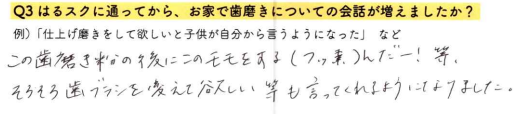 Q3 はるスクに通ってから、お家で歯磨きについての会話が増えましたか？
例）「仕上げ磨きをして欲しいと子供が自分から言うようになった」 など
この歯磨き粉の後にこのモモをする（フッ素）んだー！等、
そろそろ歯ブラシを変えて欲しい 等も言ってくれるようになりました。